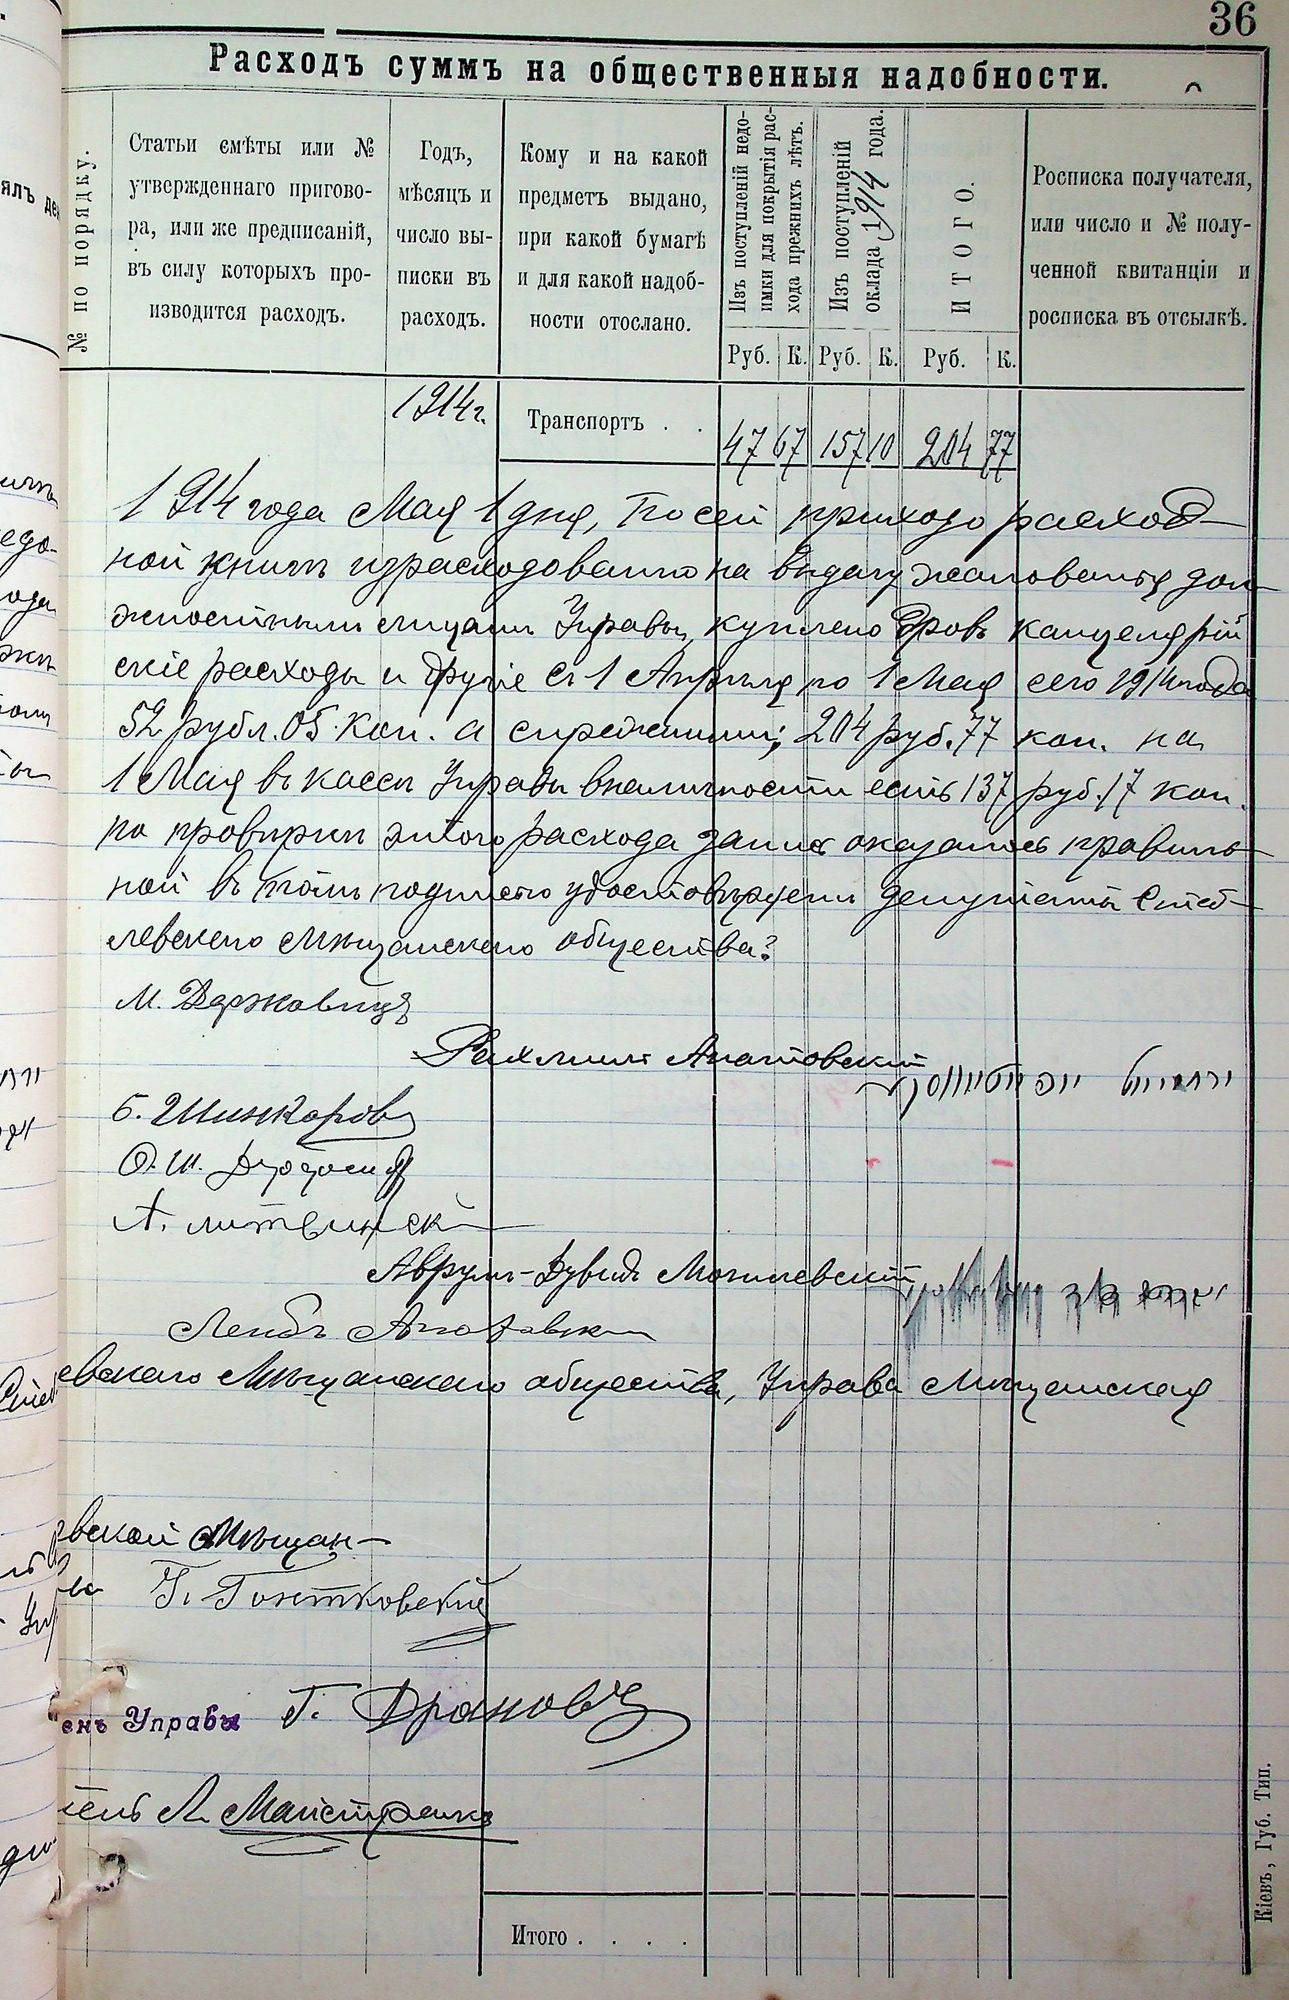 36
Расходъ суммъ на общественныя надобности.
№ по порядку.
Статьи смѣты или №
утвержденнаго пригово-
ра, или же предписаній,
въ силу которыхъ про-
изводится расходъ.
Годъ,
мѣсяцъ и
число вы-
писки въ
расходъ.
Кому и на какой
предметъ выдано,
при какой бумагѣ
и для какой надоб-
ности отослано.
Изъ поступленій недо-
имки для покрытія рас-
хода прежнихъ лѣтъ.
Изъ поступленій
оклада 1914 года.
ИТОГО.
Росписка получателя,
или число и № полу-
ченной квитанціи и
росписка въ отсылкѣ.
Руб. К. Руб. К. Руб. К.
1914 г. Транспортъ . . 47 67 157 10 204 77
1914 года Мая 1 дня, По сей приходо расход-
ной книги израсходовано на выдачу жалованья дол-
жностными лицами Управы, куплено дровъ канцелярій
скіе расходы и другіе съ 1 Апрѣля по 1 Мая сего 1914 года
52 рубл. 05 коп. а спрежними; 204 руб. 77 коп. на
1 Мая въ кассы Управы вналичности есть 137 руб. 17 коп.
по провѣрки этого расхода запись оказалось правиль-
ной въ томъ подписью удостовѣряемъ депутаты Стеб-
левскаго Мѣщанскаго общества?
М. Державецъ
Рахмиль Анатовский
Б. Шинкаровъ
О. Ш.
А. Литвинск
Аврумъ-Дувидъ Могилевский
Лейбъ
евскаго Мѣщанскаго общества, Управа Мѣщанская
вской Мѣщан-
Г. Гонтковский
енъ Управы Г. Драновъ
тель Л. Майстренко
Итого . . . .
Кіевъ, Губ. Тип.